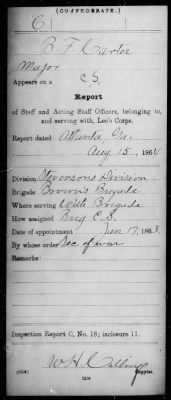 (CONFEDERATE.)
C
B F Carter
Major
Appears on a C.S.
Report
of Staff and Acting Staff Officers, belonging to,
and serving with, Lee's Corps.
Report dated Atlanta Ga.
Aug 15, 1864
Division Stevensons Division
Brigade Brown's Brigade
Where serving With Brigade
How assigned Brig C.S.
Date of appointment Jan 17, 1863
By whose order Sec of war
Remarks:
Inspection Report C, No. 18; inclosure 11.
W.H.
(634)
Copyist.